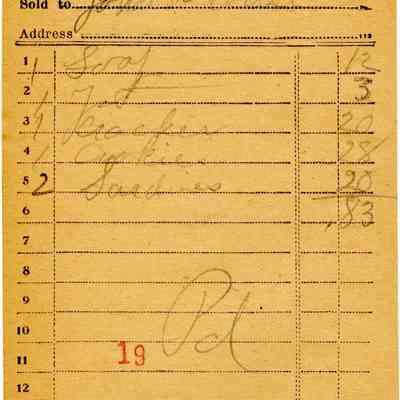 Sold to
Address
1 1 Soap 12
2 1 3
3 1 20
4 1 Cookies 28
5 2 Sardines 20
6 .83
7
8
9 Pd
10
11 19
12